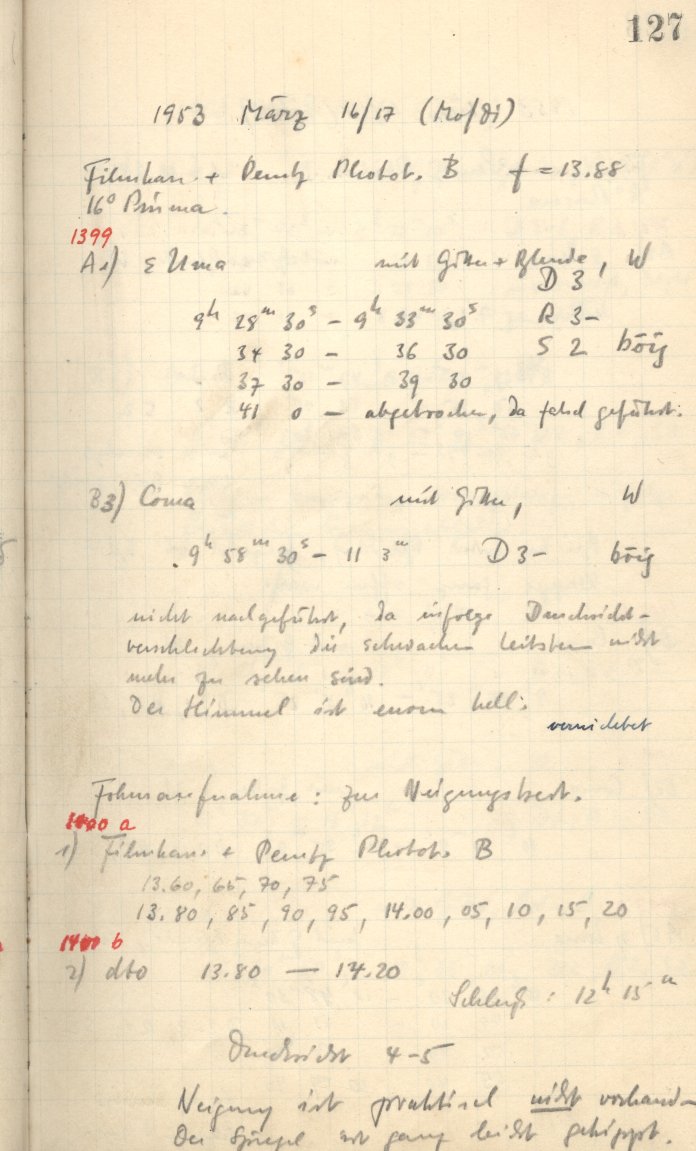 127
1953 März 16/17 (Mo/Di)
Filmkass. + Perutz Photot. B f = 13.88
16° Prisma.
1399
A1) ε Uma mit Gitter + Blende, W
D 3
9h 28m 30s – 9h 33m 30s R 3–
34 30 – 36 30 S 2 böig
37 30 – 39 30
41 0 – abgebrochen, da falsch geführt.
B3) Coma mit Gitter, W
9h 58m 30s – 11 3m D 3– böig
nicht nachgeführt, da infolge Durchsicht-
verschlechterung die schwachen Leitsterne nicht
mehr zu sehen sind.
Der Himmel ist enorm hell.
vernichtet
Fokusaufnahme: zur Neigungsbest.
1400 a
1) Filmkass. + Perutz Photot. B
13.60, 65, 70, 75
13.80, 85, 90, 95, 14.00, 05, 10, 15, 20
1400 b
2) dto 13.80 — 14.20
Schluß: 12h 15m
Durchsicht 4–5
Neigung ist praktisch nicht vorhand–
Der Spiegel ist ganz leicht gekippt.